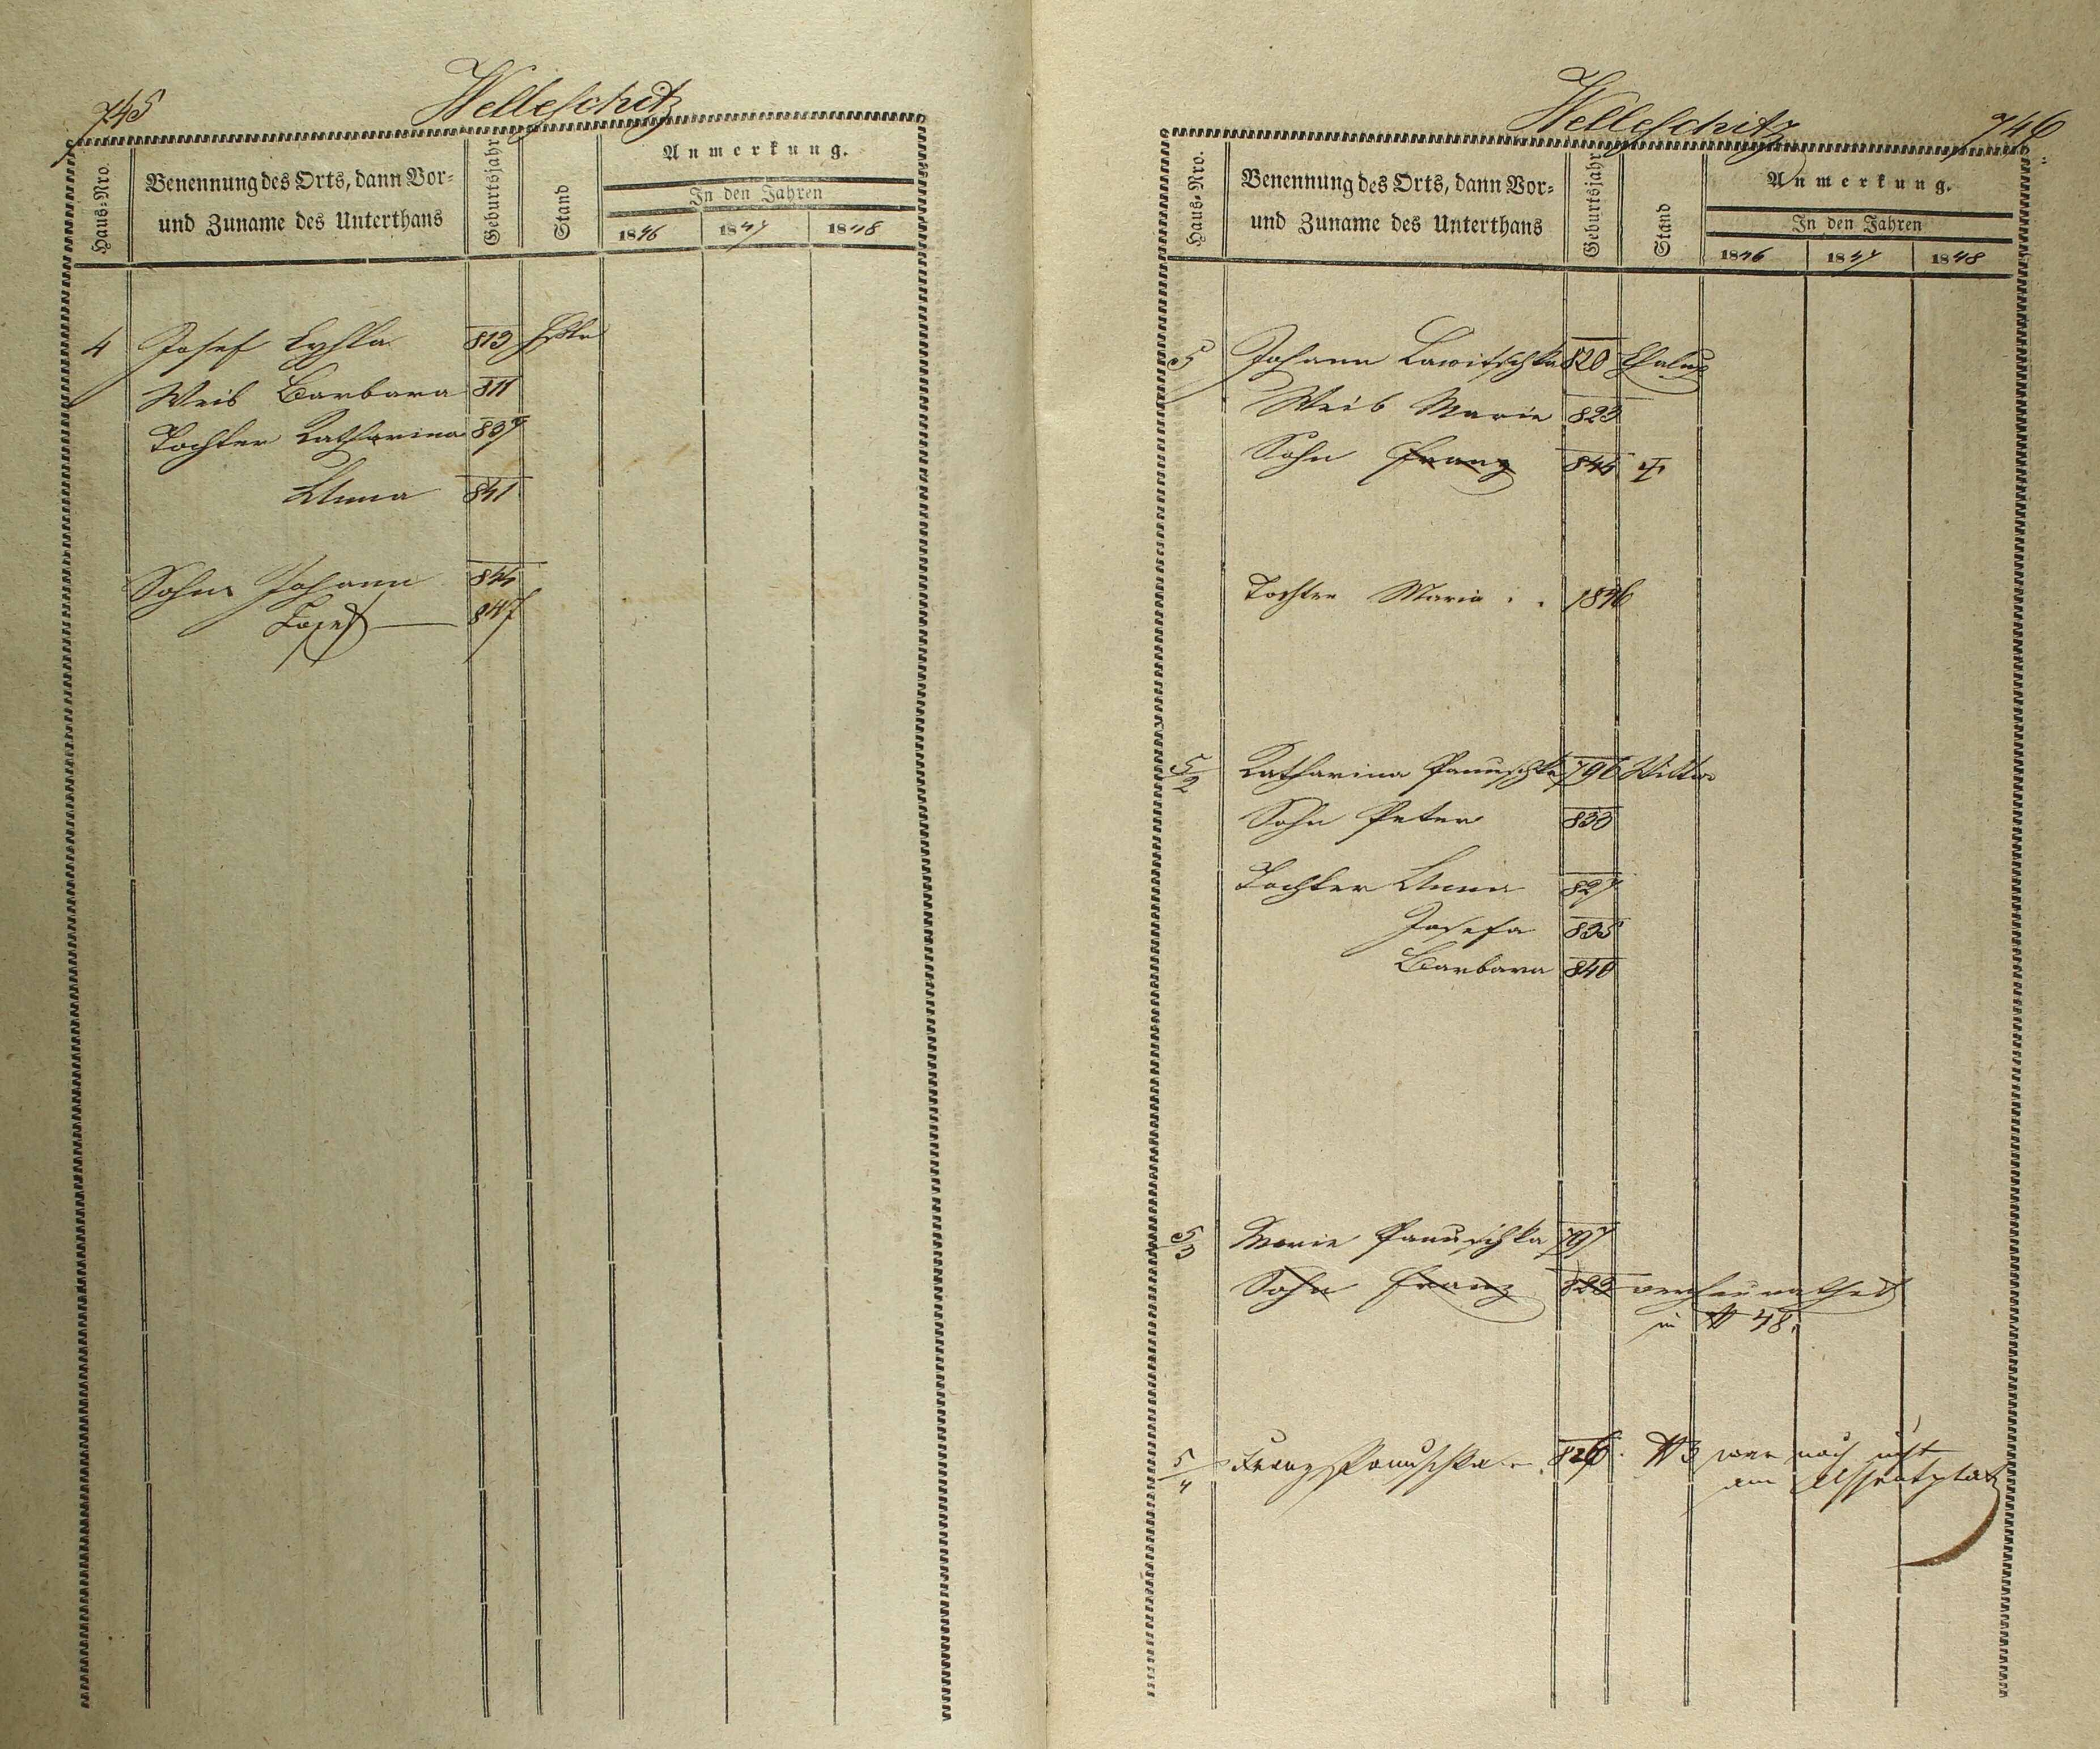 745
Welleschitz
Haus-Nro.
Benennung des Orts, dann Vor-
und Zuname des Unterthans
Geburtsjahr
Stand
Anmerkung.
In den Jahren
1846 1847 1848
4 Josef 813
Weib Barbara 811
Tochter Katharina 837
Anna 841
Sohn Johann 844
Josef 847
Welleschitz
746
Haus-Nro.
Benennung des Orts, dann Vor-
und Zuname des Unterthans
Geburtsjahr
Stand
Anmerkung.
In den Jahren
1846 1847 1848
5 Johann Lawitschka 820 Chalup
Weib Marie 823
Sohn Franz 844 †
Tochter Maria 1846
5/2 Katharina Panuschka 796 Wittwe
Sohn Peter 833
Tochter Anna 827
Josefa 835
Barbara 840
5/3 Marie Panuschka 797
Sohn Franz 823 verheurathet
in N 48.
5/4 Franz Panuschka 826 N 3 war noch nicht
am Assentplatz